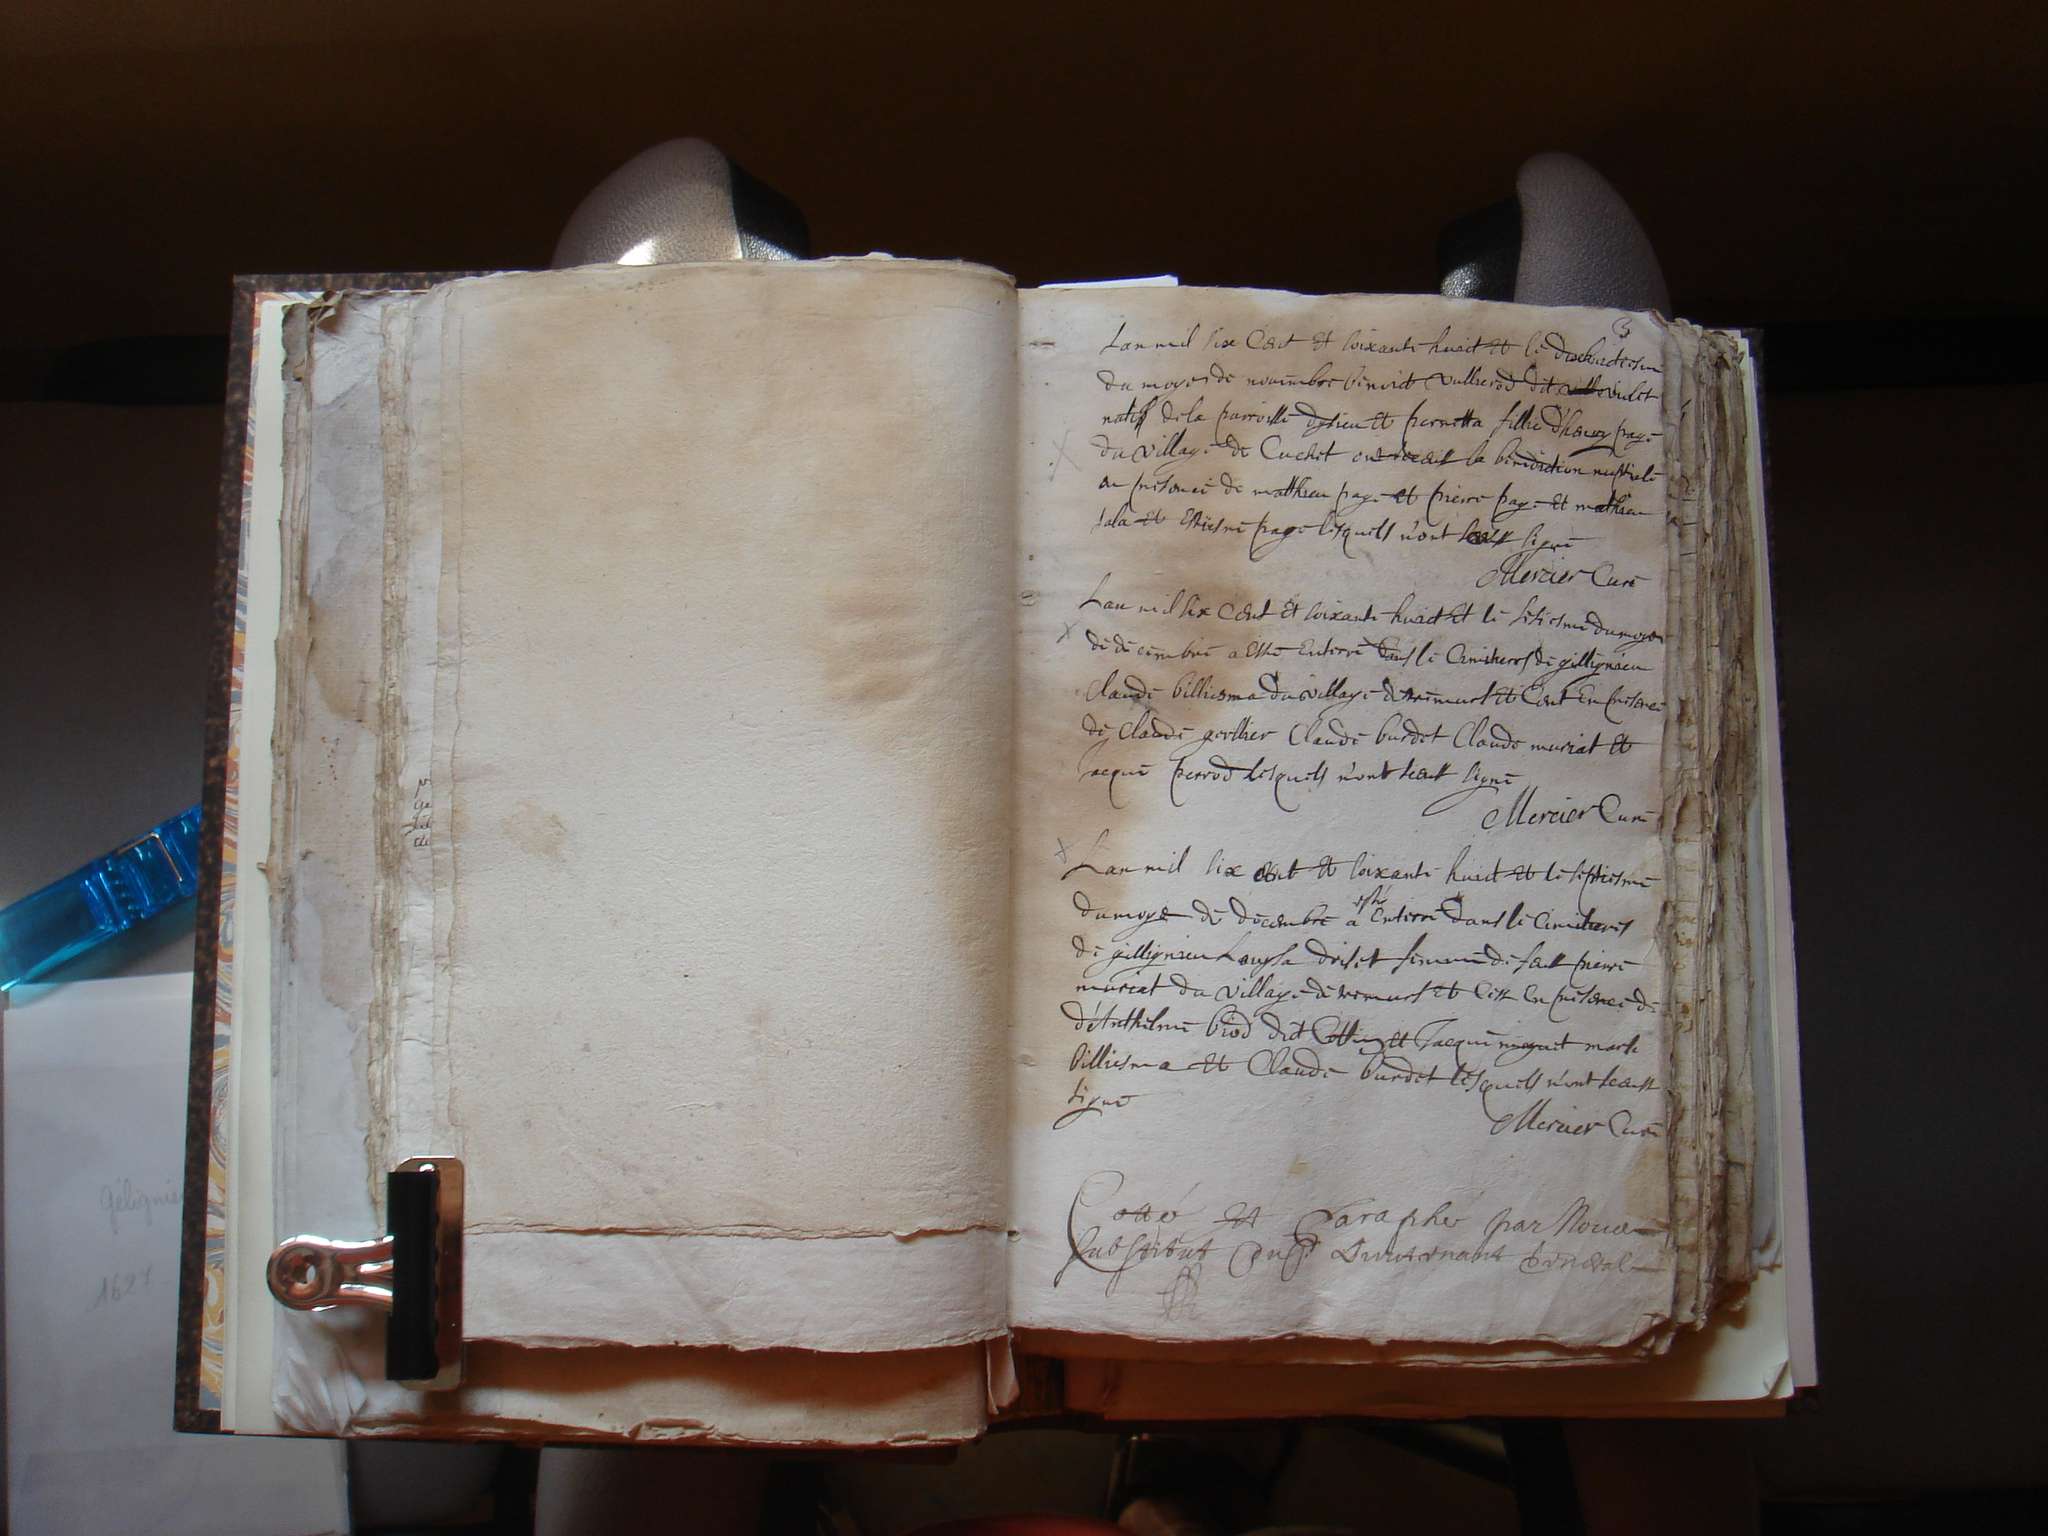 Lan mil six Cent Et soixante huict Et le dixhuictiesm
du moys de novembre benoict vullierod dit vulet
natif de la parroisse Et pernetta fillie d'henry page
du village de Cuchet ont receust la benediction nuptiale
en presence de mathieu page et pierre page Et mathieu
Et Estiesne page lesquells n'ont seust signé
Mercier Curé
Lan mil six Cent Et soixante huict Et le sesiesme du moys
de decembre a Esté Enterré dans le Cimitieres de gillignieu
Claude billiema du village Et Cest En presence
de Claude gerllier Claude burdet Claude muriat Et
Jacque perrod lesquells n'ont seust signé
Mercier Curé
Lan mil six cent Et soixante huict Et le septiesme
du moys de decembre a esté Enterré dans le Cimitieres
de gillignieu Loysa driset femme de feust pierre
muriat du village Et Cest En presence de
d'Anthelme biod dit Et Jacque mark
billiema Et Claude burdet lesquells n'ont seust
signé
Mercier Curé
Cotté Et Paraphé par Nous
substitut Lieutenant General
Géligni
1627